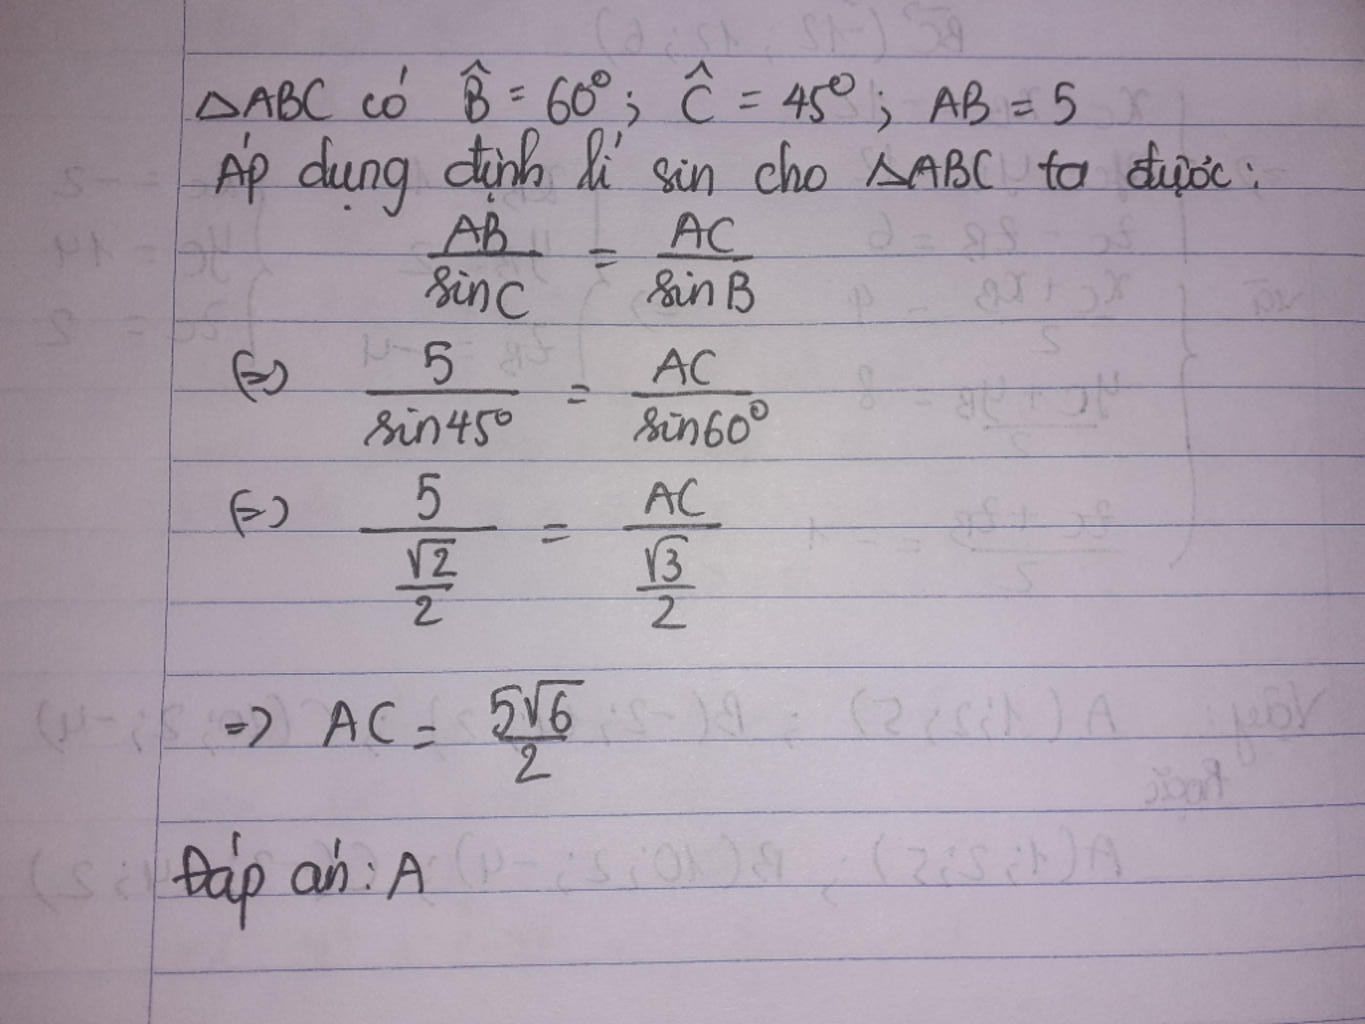 △ABC có B̂ = 60°; Ĉ = 45°; AB = 5
Áp dụng định lí sin cho △ABC ta được:
AB/sinC = AC/sinB
(=) 5/sin45° = AC/sin60°
(=) 5/(√2/2) = AC/(√3/2)
=> AC = 5√6/2
Đáp án: A